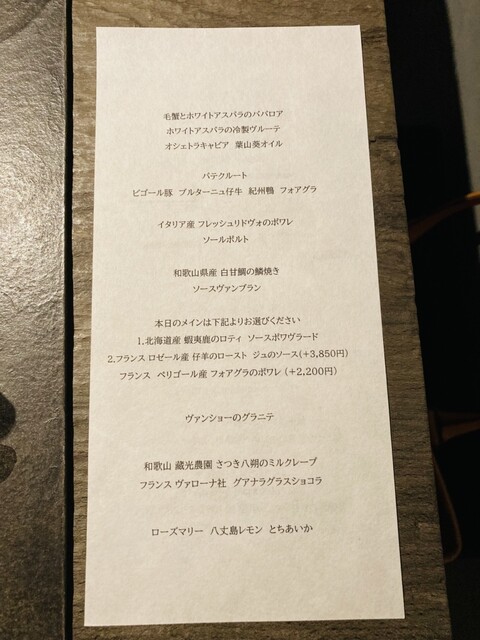 毛蟹とホワイトアスパラのババロア
ホワイトアスパラの冷製ヴルーテ
オシェトラキャビア 葉山葵オイル
パテクルート
ビゴール豚 ブルターニュ仔牛 紀州鴨 フォアグラ
イタリア産 フレッシュリドヴォのポワレ
ソールポルト
和歌山県産 白甘鯛の鱗焼き
ソースヴァンブラン
本日のメインは下記よりお選びください
1.北海道産 蝦夷鹿のロティ ソースポワヴラード
2.フランス ロゼール産 仔羊のロースト ジュのソース(+3,850円)
フランス ペリゴール産 フォアグラのポワレ (+2,200円)
ヴァンショーのグラニテ
和歌山 蔵光農園 さつき八朔のミルクレープ
フランス ヴァローナ社 グアナラグラスショコラ
ローズマリー 八丈島レモン とちあいか